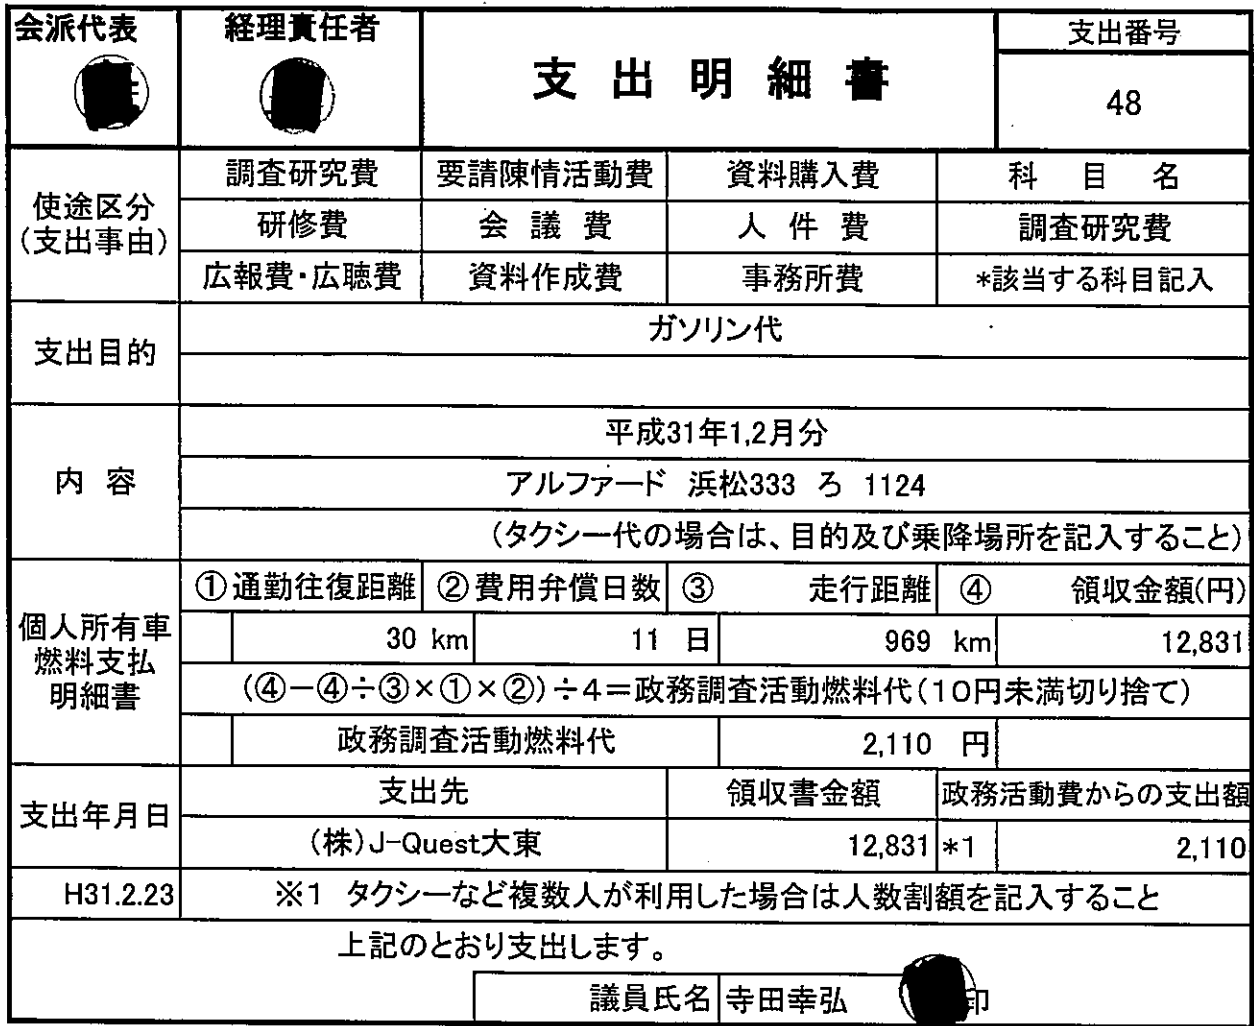 会派代表
経理責任者
支出明細書
支出番号
48
使途区分
(支出事由)
調査研究費 要請陳情活動費 資料購入費 科目名
研修費 会議費 人件費 調査研究費
広報費・広聴費 資料作成費 事務所費 *該当する科目記入
支出目的
ガソリン代
内容
平成31年1,2月分
アルファード 浜松333 ろ 1124
(タクシー代の場合は、目的及び乗降場所を記入すること)
個人所有車
燃料支払
明細書
①通勤往復距離 ②費用弁償日数 ③ 走行距離 ④ 領収金額(円)
30 km 11 日 969 km 12,831
(④-④÷③×①×②)÷4=政務調査活動燃料代(10円未満切り捨て)
政務調査活動燃料代 2,110 円
支出年月日
支出先 領収書金額 政務活動費からの支出額
(株)J-Quest大東 12,831 *1 2,110
H31.2.23 ※1 タクシーなど複数人が利用した場合は人数割額を記入すること
上記のとおり支出します。
議員氏名 寺田幸弘 印